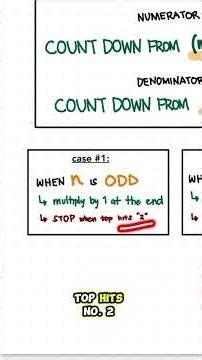 NUMERATOR
COUNT DOWN FROM
DENOMINATOR
COUNT DOWN FROM
case #1:
WHEN n is ODD
↳ multiply by 1 at the end
↳ STOP when top hits "2"
TOP HITS
NO. 2